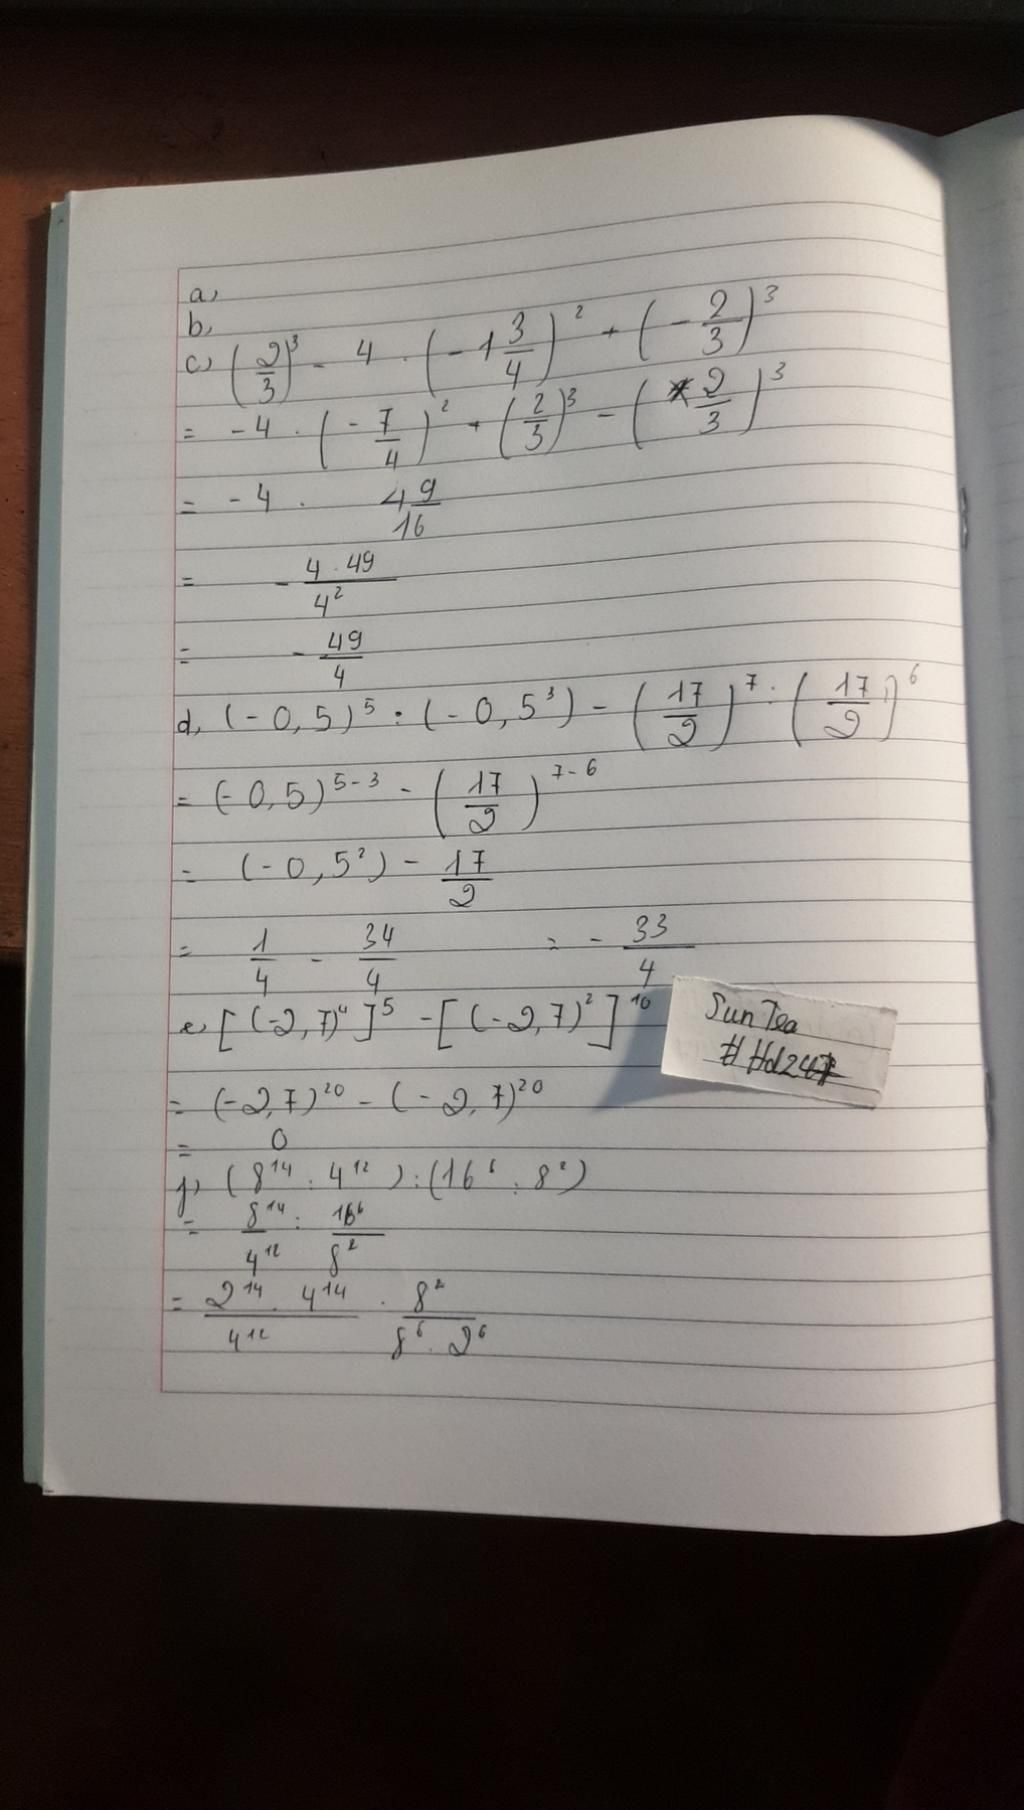 a,
b,
c, (2/3)³ - 4 . (-1 3/4)² + (-2/3)³
= -4 . (-7/4)² + (2/3)³ - (2/3)³
= -4 . 49/16
= - 4.49/4²
= - 49/4
d, (-0,5)⁵ : (-0,5³) - (17/2)⁷ : (17/2)⁶
= (-0,5)⁵⁻³ - (17/2)⁷⁻⁶
= (-0,5²) - 17/2
= 1/4 - 34/4 = - 33/4
e, [(-2,7)⁴]⁵ - [(-2,7)²]¹⁰
Sun Tea
= (-2,7)²⁰ - (-2,7)²⁰
= 0
f, (8¹⁴ : 4¹²) : (16⁶ : 8²)
= 8¹⁴/4¹² : 16⁶/8²
= 2¹⁴ . 4¹⁴/4¹² . 8²/8⁶ . 2⁶